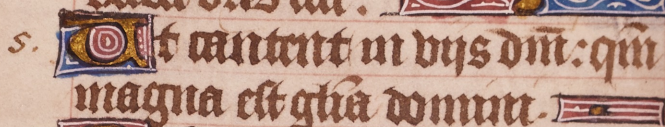 5. Et cantent in vijs dn̄i: qm̄
magna est gl̄ia domini.